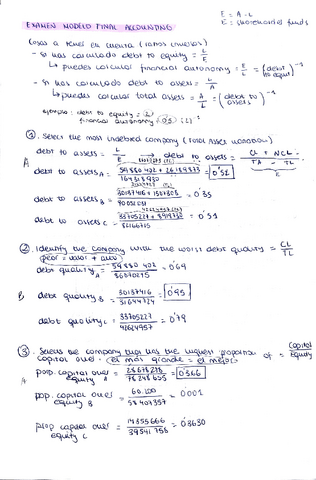 E = A - L
EXAMEN MODELO FINAL ACCOUNTING
E = shareholders funds
Cosas a tener en cuenta (ratios inversos)
- Si nos calculado debt to equity = L/E
↳ puedes calcular financial autonomy = E/L = (debt to equity)⁻¹
- Si nos calculado debt to assets = L/A
↳ puedes calcular total assets = A/L = (debt to assets)⁻¹
ejemplo: debt to equity = 2
financial autonomy 0'5
① Select the most indebted company
A
debt to assets = L/E → debt to assets = CL + NCL / TA - TL
E
debt to assets A = 59880402 + / 164318930 = 0'51
debt to assets B = 30137416 + 1587308 / = 0'35
debt to assets C = 33705227 + 8919730 / = 0'51
② Identify the company with the worst debt quality = CL/TL
peor = valor + alto
debt quality A = 59880402 / = 0'69
B
debt quality B = 30137416 / 31644724 = 0'95
debt quality C = 33705227 / 42624957 = 0'79
③ Select the company that has the highest proportion of capital over equity
= capital/equity
el más grande = el mejor
A
prop. capital over equity A = 28678278 / 78248655 = 0'366
prop. capital over equity B = 60.100 / 58407357 = 0'001
prop capital over equity C = 14355666 / 39541758 = 0'3630